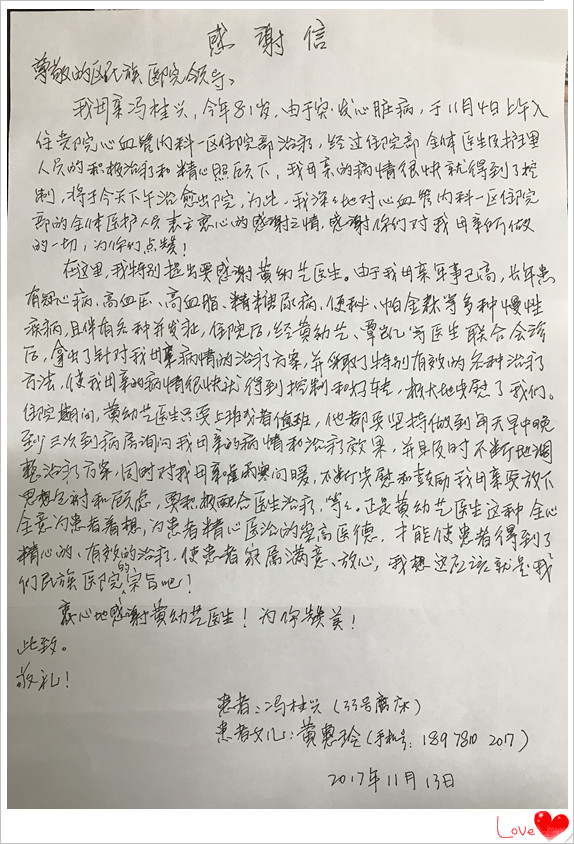 感谢信
尊敬的区民族医院领导：
我母亲冯桂兴，今年81岁，由于突发心脏病，于11月4日上午入
住贵院心血管内科一区住院部治疗，经过住院部全体医生及护理
人员的积极治疗和精心照顾下，我母亲的病情很快就得到了控
制，将于今天下午治愈出院，为此，我深深地对心血管内科一区住院
部的全体医护人员表示衷心的感谢之情，感谢你们对我母亲所做
的一切，为你们点赞！
在这里，我特别提出要感谢黄幼芝医生。由于我母亲年事已高，长年患
有冠心病、高血压、高血脂、糖尿病、便秘、帕金森等多种慢性
疾病，且伴有各种并发症，住院后，经黄幼芝、覃凯等医生联合会诊
后，拿出了针对我母亲病情的治疗方案，并采取了特别有效的各种治疗
方法，使我母亲的病情很快就得到控制和好转，极大地安慰了我们。
住院期间，黄幼芝医生只要上班或者值班，他都要坚持做到每天早中晚
到三次到病房询问我母亲的病情和治疗效果，并且及时不断地调
整治疗方案，同时对我母亲嘘寒问暖，不断安慰和鼓励我母亲要放下
思想包袱和顾虑，要积极配合医生治疗，等等。正是黄幼芝医生这种全心
全意为患者着想，为患者精心医治的崇高医德，才能使患者得到了
精心的、有效的治疗，使患者家属满意、放心，我想这应该就是我
们民族医院的宗旨吧！
衷心地感谢黄幼芝医生！为你赞美！
此致。
敬礼！
患者：冯桂兴（33号病床）
患者女儿：黄惠玲（手机号：1897810 2017）
2017年11月13日
Love